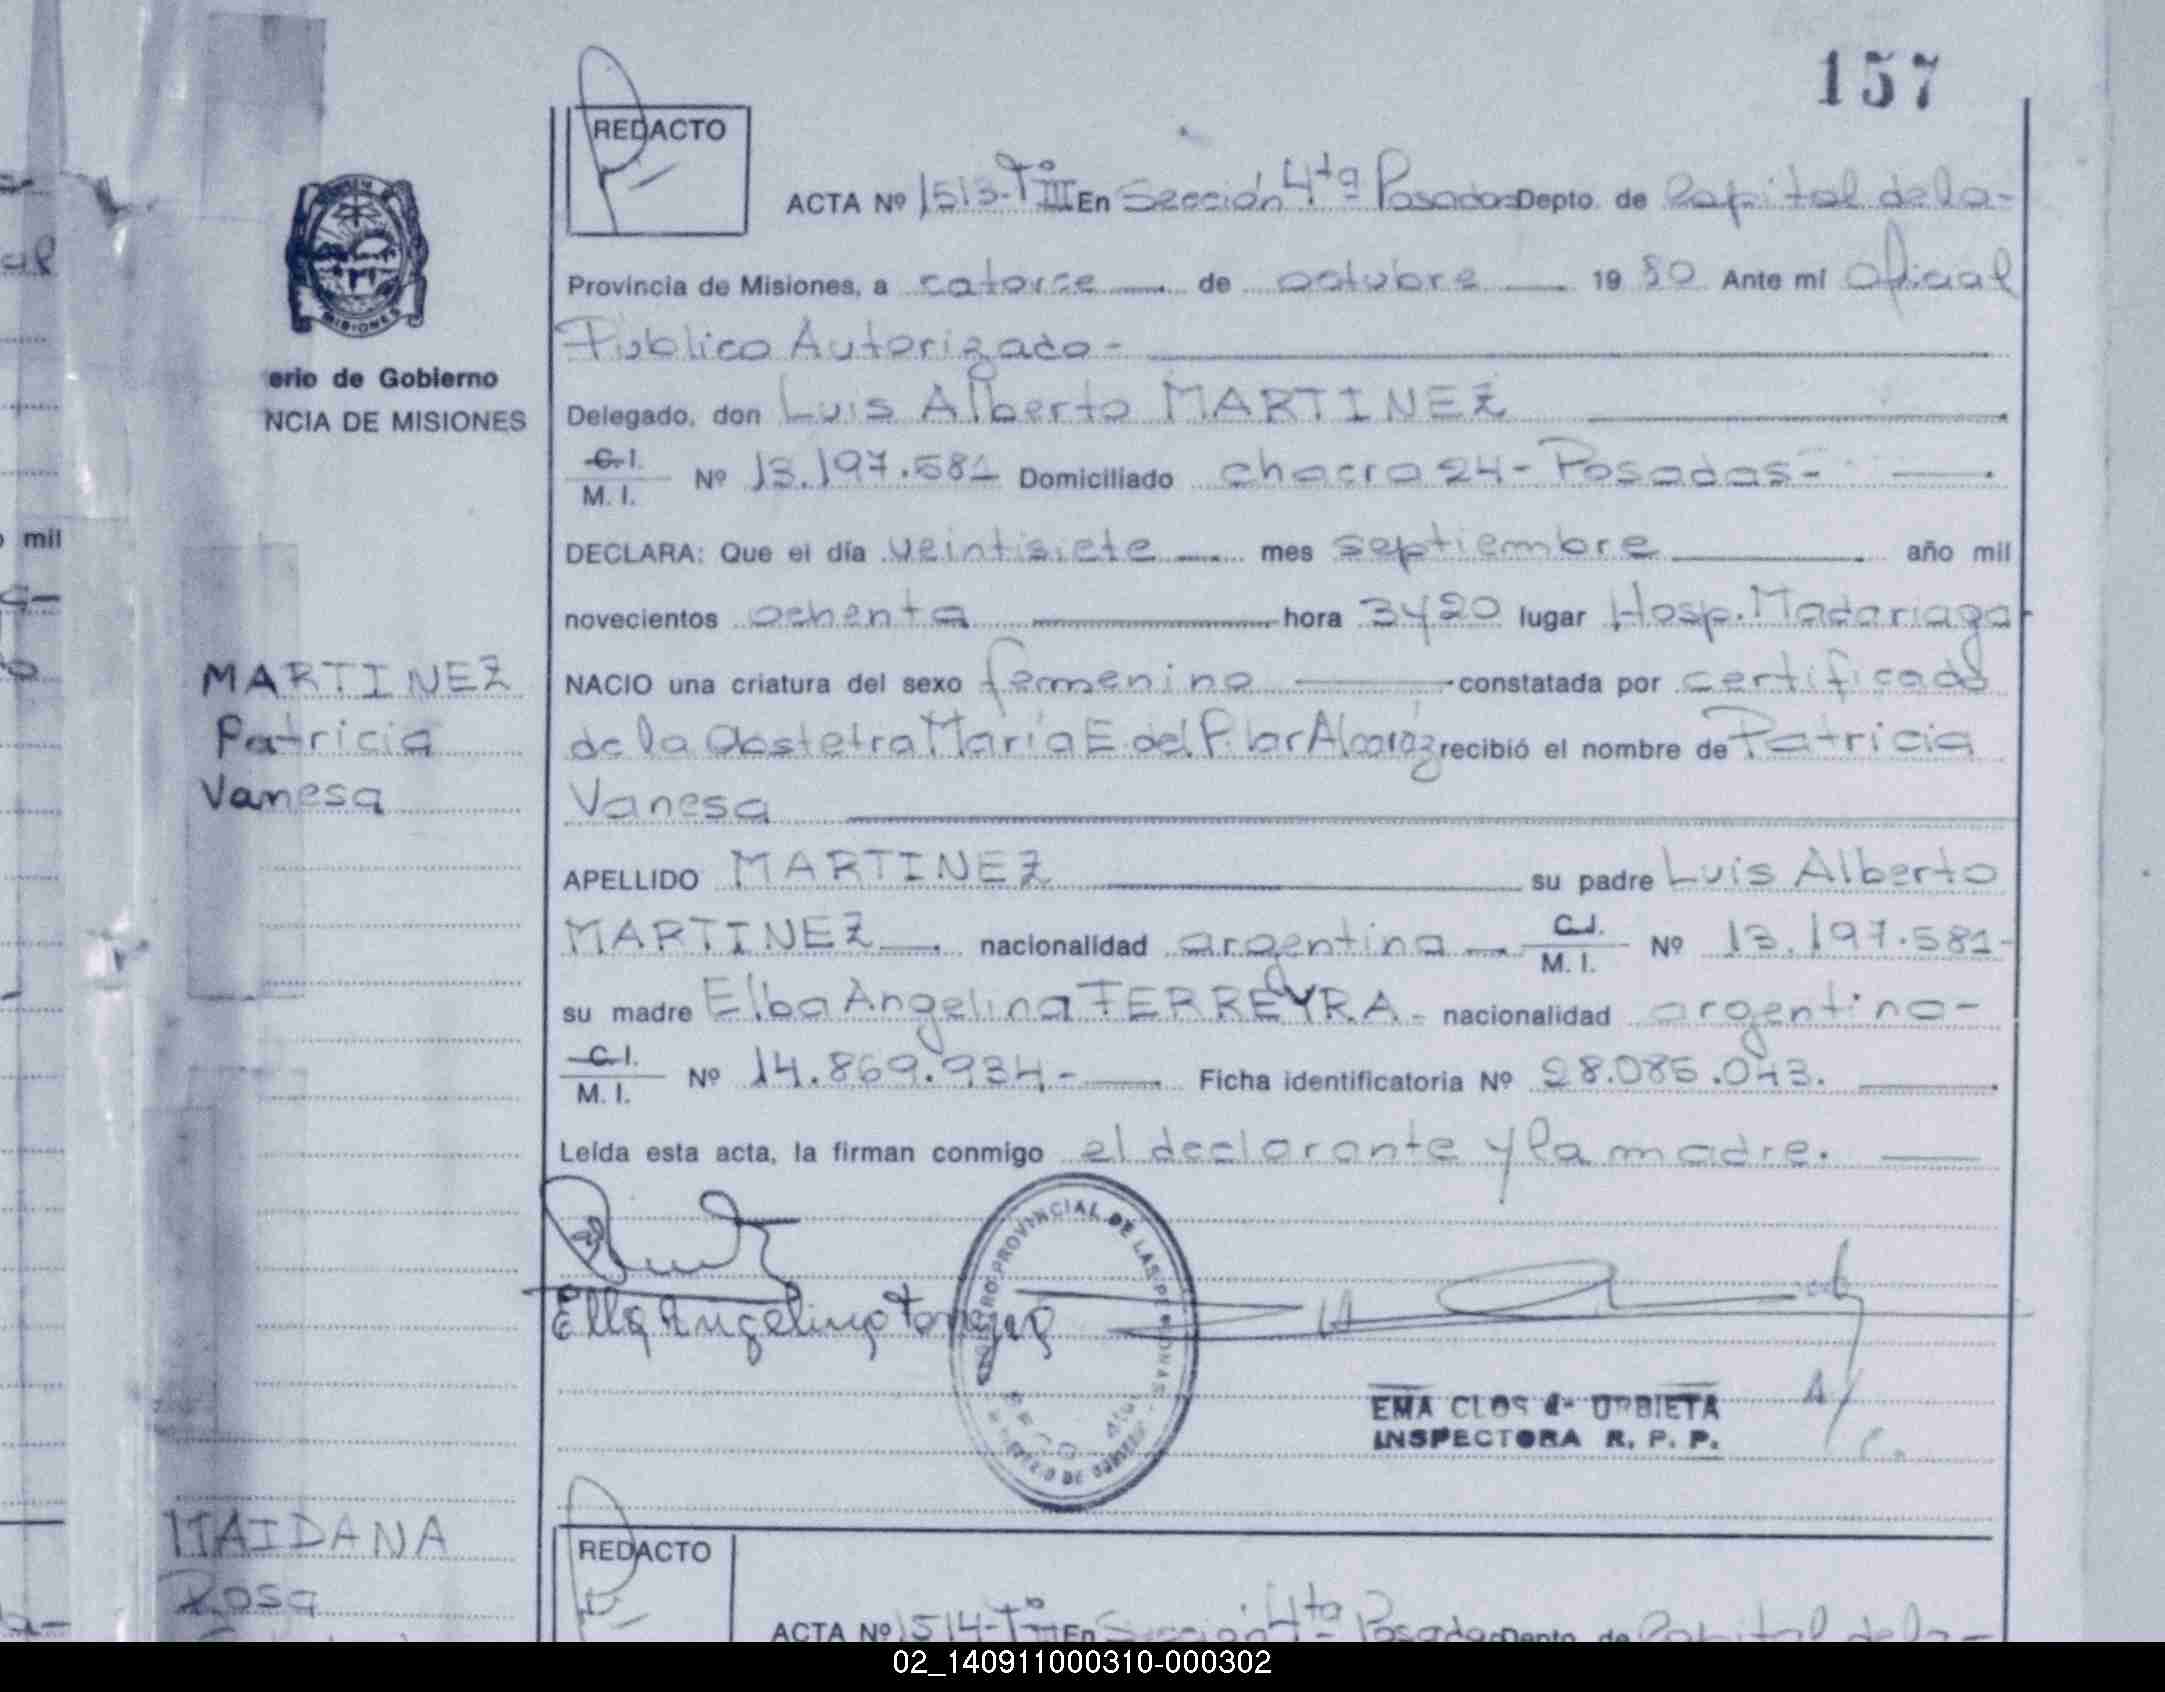 157
REDACTO
ACTA Nº 1513-Tº III En Sección 4ta Posadas Depto. de Capital de la-
Provincia de Misiones, a catorce de octubre 19 80 Ante mí Oficial
Público Autorizado-
erio de Gobierno
NCIA DE MISIONES
MISIONES
Delegado, don Luis Alberto MARTINEZ
C.I. M. I. Nº 13.197.581 Domiciliado chacra 24-Posadas-
DECLARA: Que el día veintisiete mes septiembre año mil
novecientos ochenta hora 3y20 lugar Hosp. Madariaga
MARTINEZ
Patricia
Vanesa
NACIO una criatura del sexo femenino constatada por certificado
de la Obstetra María E. del Pilar Alcaráz recibió el nombre de Patricia
Vanesa
APELLIDO MARTINEZ su padre Luis Alberto
MARTINEZ nacionalidad argentina C.I. M. I. Nº 13.197.581-
su madre Elba Angelina FERREYRA- nacionalidad argentina-
C.I. M. I. Nº 14.869.934- Ficha identificatoria Nº 28.085.043.
Leída esta acta, la firman conmigo el declarante y la madre.
PROVINCIAL DE LAS PERSONAS
EMA CLOS de URBIETA
INSPECTORA R. P. P.
MAIDANA
Rosa
REDACTO
ACTA Nº 1514-Tº III En Sección 4ta Posadas Depto. de Capital de la-
mil
02_140911000310-000302